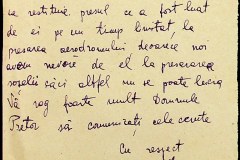 se restitue, presul ce a fost luat
de ei pe un timp limitat, la
presarea aerodromului deoarece noi
avem nevoie de el la presarea
șoselii căci altfel nu se poate lucra
Vă rog foarte mult Domnule
Pretor să comunicați cele cerute
Cu respect